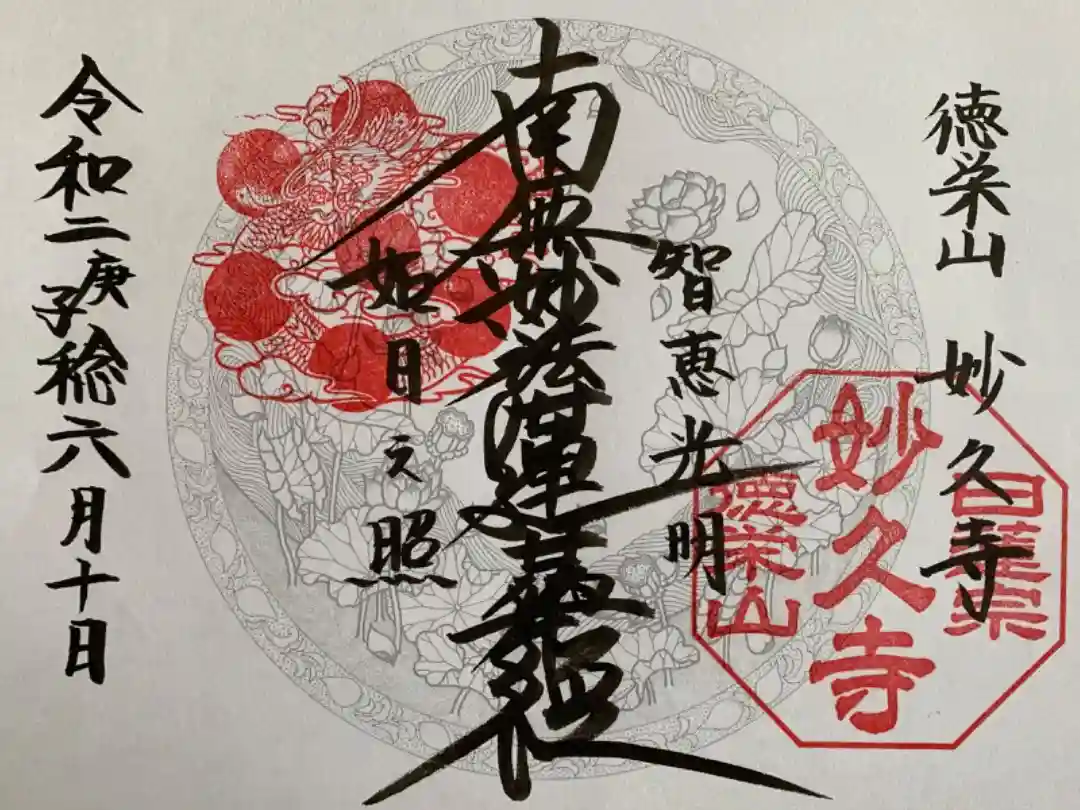 徳栄山 妙久寺
日蓮宗
妙久寺
徳栄山
智恵光明
南無妙法蓮華経
如日之照
令和二庚子稔六月十日